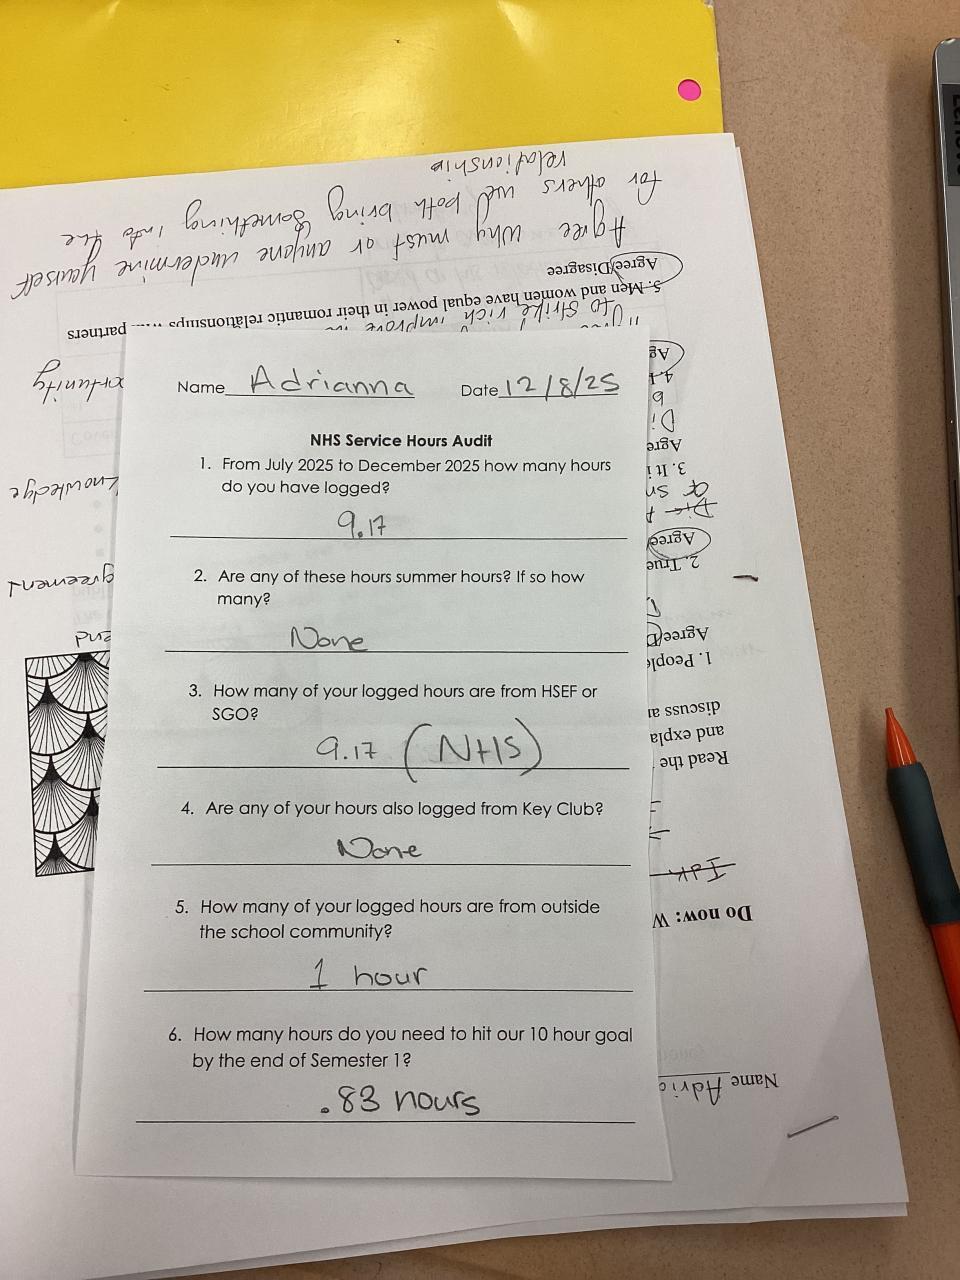 Name Adrianna Date 12/8/25
NHS Service Hours Audit
1. From July 2025 to December 2025 how many hours
do you have logged?
9.17
2. Are any of these hours summer hours? If so how
many?
None
3. How many of your logged hours are from HSEF or
SGO?
9.17 (NHS)
4. Are any of your hours also logged from Key Club?
None
5. How many of your logged hours are from outside
the school community?
1 hour
6. How many hours do you need to hit our 10 hour goal
by the end of Semester 1?
.83 hours
Name Adria
Do now: W
Idk
Read the
and expla
discuss a
1. People
Agree/D
2. True
Agree
3. It i
Agre
Di
4.
Ag
to strike rich improve
5. Men and women have equal power in their romantic relationships partners
Agree/Disagree
Agree why must or anyone undermine yourself
for others we both bring something into the
relationship
knowledge
greement
end
Lenovo